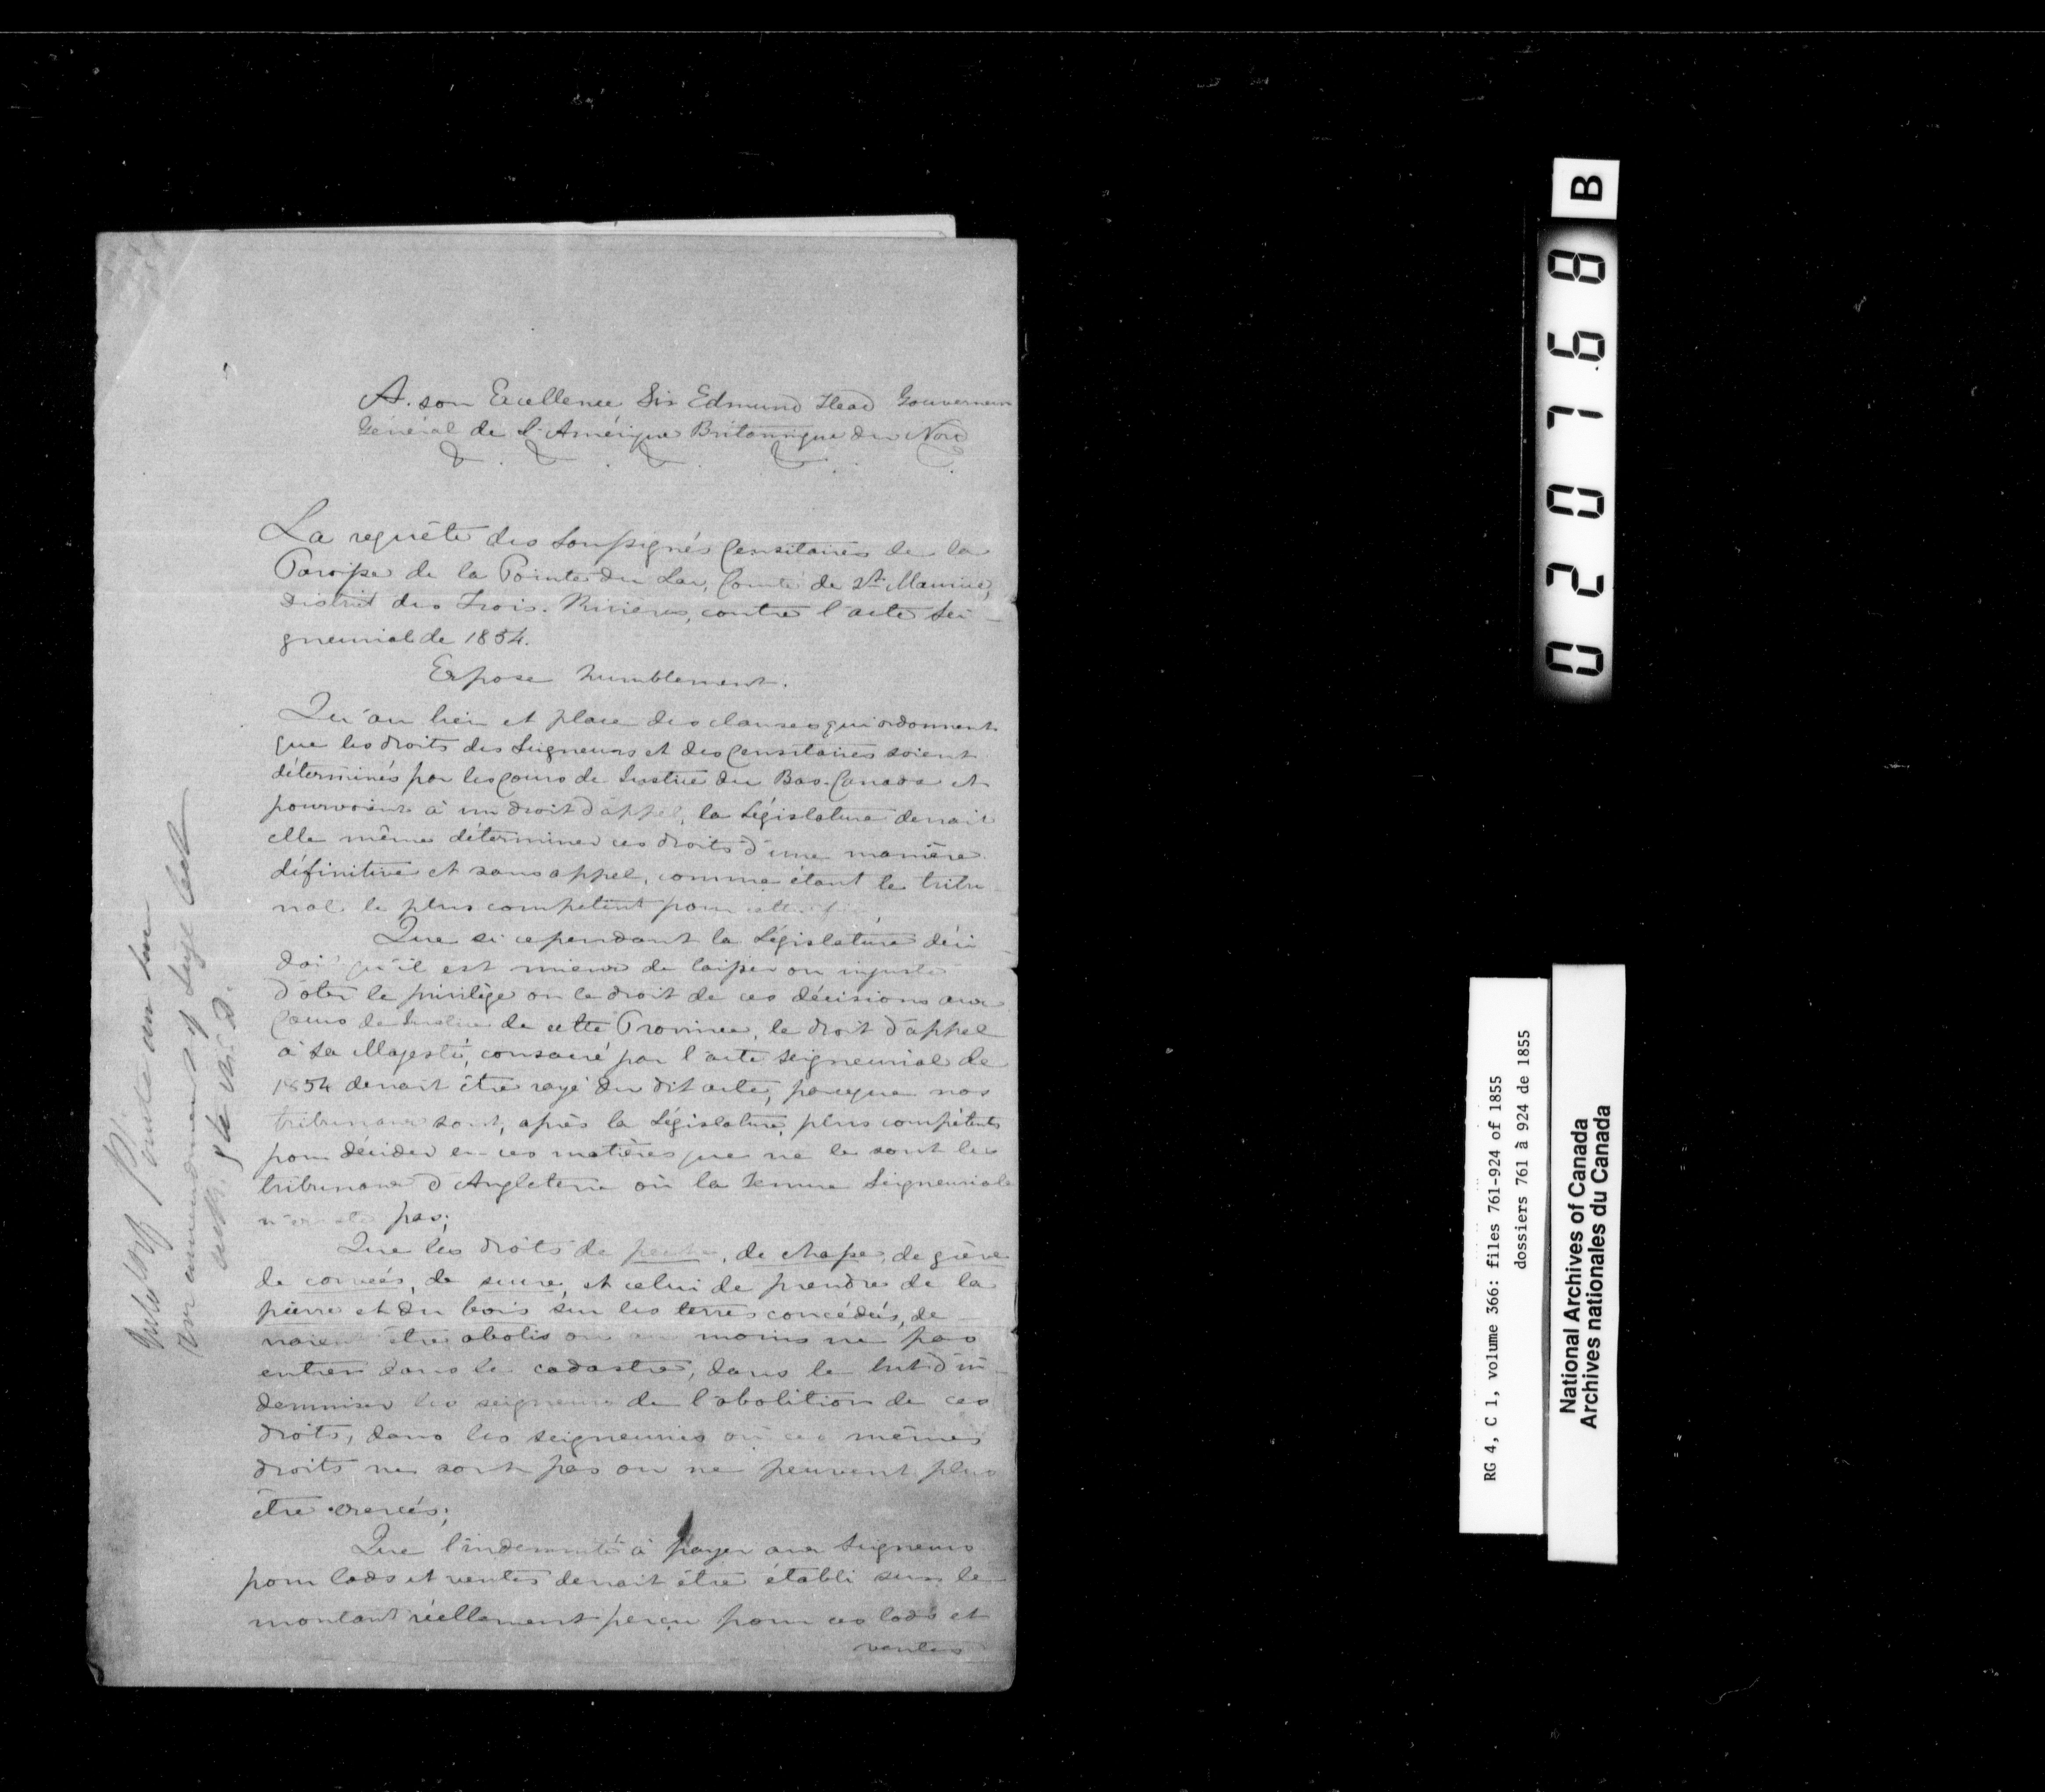 A. son Excellence Sir Edmund Head Gouverneur
Général de l'Amérique Britannique du Nord
&. &. &. &. &.
La requête des Soussignés Censitaires de la
Paroisse de la Pointe du Lac, Comté de St. Maurice,
District des Trois-Rivières, contre l'acte Sei-
gneurial de 1854.
Expose humblement.
Qu'au lieu et place des clauses qui ordonnent
que les droits des Seigneurs et des Censitaires soient
déterminés par les Cours de Justice du Bas-Canada et
pourvoient à un droit d'appel, la Législature devrait
elle même déterminer ces droits d'une manière
définitive et sans appel, comme étant le tribu-
nal le plus compétent pour cette fin.
Que si cependant la Législature déci-
dait qu'il est mieux de laisser ou injuste
d'ôter le privilège ou le droit de ces décisions aux
Cours de Justice de cette Province, le droit d'appel
à Sa Majesté, consacré par l'acte Seigneurial de
1854 devrait être rayé du dit acte, parceque nos
tribunaux sont, après la Législature, plus compétents
pour décider en ces matières que ne le sont les
tribunaux d'Angleterre où la Tenure Seigneuriale
n'existe pas;
Que les droits de pêche, de chasse, de grève
de corvées, de sucre, et celui de prendre de la
pierre et du bois sur les terres concédées, de-
vraient être abolis ou au moins ne pas
entrer dans le cadastre, dans le but d'in-
demniser les seigneurs de l'abolition de ces
droits, dans les seigneuries où ces mêmes
droits ne sont pas ou ne peuvent plus
être exercés;
Que l'indemnité à payer aux Seigneurs
pour lods et ventes devrait être établi sur le
montant réellement perçu pour ces lods et
ventes
Pointe du Lac
an amendment of Seigl
B
020768
RG 4, C 1, volume 366: files 761-924 of 1855
dossiers 761 à 924 de 1855
National Archives of Canada
Archives nationales du Canada